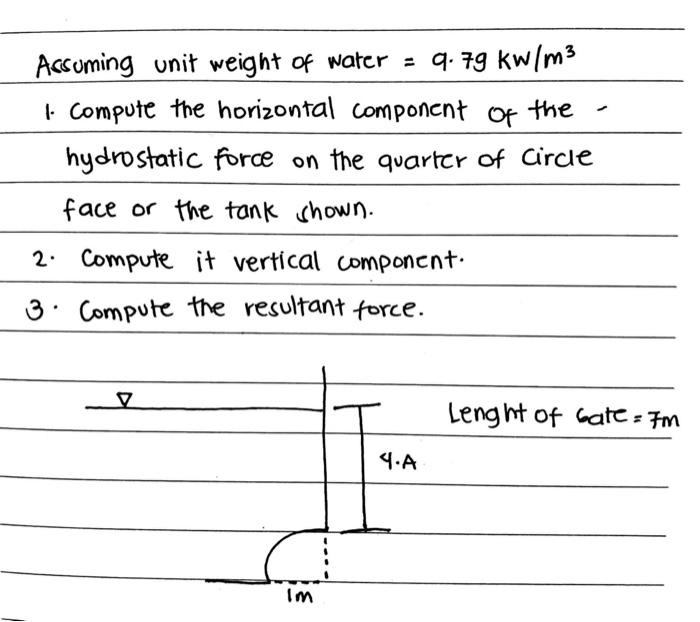 Assuming unit weight of water = 9.79 kw/m³
1. Compute the horizontal component of the -
hydrostatic force on the quarter of circle
face or the tank shown.
2. Compute it vertical component.
3. Compute the resultant force.
Lenght of Gate = 7m
4.A
1m